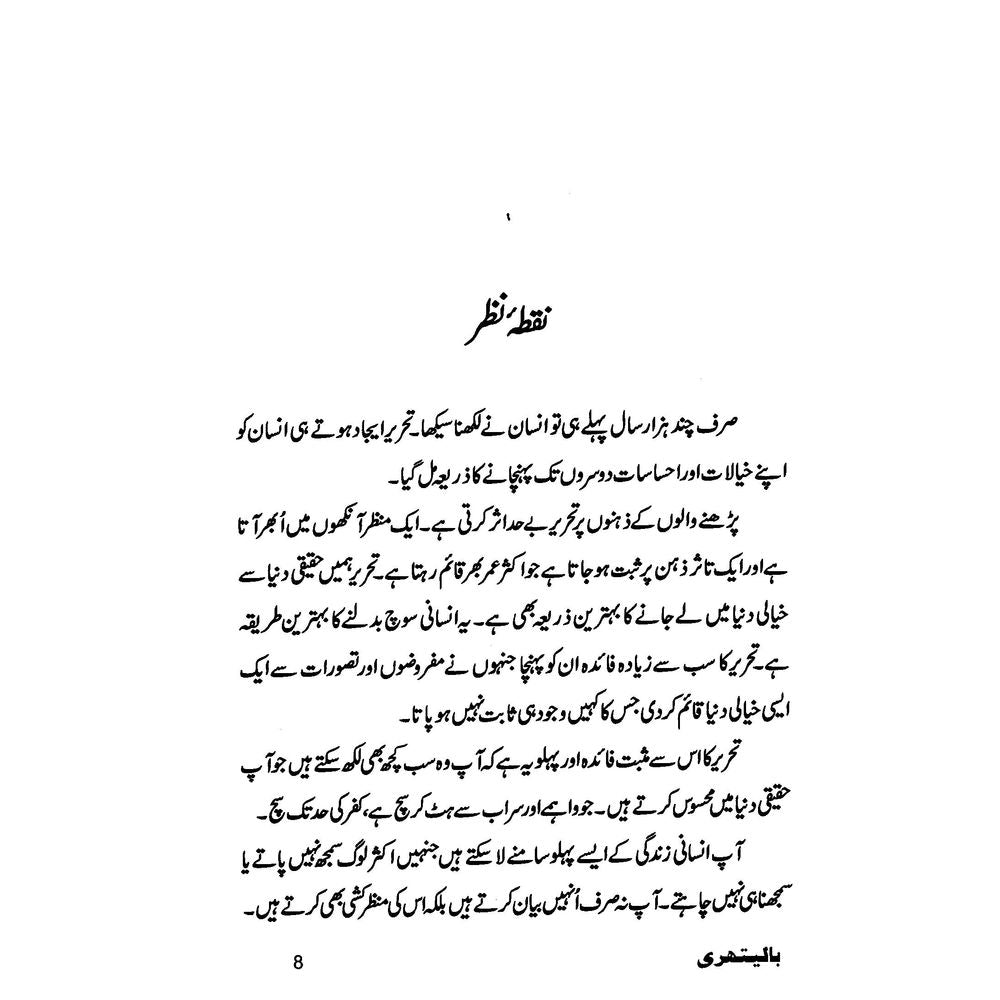 نقطۂ نظر
صرف چند ہزار سال پہلے ہی تو انسان نے لکھنا سیکھا۔ تحریر ایجاد ہوتے ہی انسان کو
اپنے خیالات اور احساسات دوسروں تک پہنچانے کا ذریعہ مل گیا۔
پڑھنے والوں کے ذہنوں پر تحریر بے حد اثر کرتی ہے۔ ایک منظر آنکھوں میں اُبھر آتا
ہے اور ایک تاثر ذہن پر ثبت ہو جاتا ہے جو اکثر عمر بھر قائم رہتا ہے۔ تحریر ہمیں حقیقی دنیا سے
خیالی دنیا میں لے جانے کا بہترین ذریعہ بھی ہے۔ یہ انسانی سوچ بدلنے کا بہترین طریقہ
ہے۔ تحریر کا سب سے زیادہ فائدہ ان کو پہنچا جنہوں نے مفروضوں اور تصورات سے ایک
ایسی خیالی دنیا قائم کر دی جس کا کہیں وجود ہی ثابت نہیں ہو پاتا۔
تحریر کا اس سے مثبت فائدہ اور پہلو یہ ہے کہ آپ وہ سب کچھ بھی لکھ سکتے ہیں جو آپ
حقیقی دنیا میں محسوس کرتے ہیں۔ جو واہمے اور سراب سے ہٹ کر سچ ہے، کفر کی حد تک سچ۔
آپ انسانی زندگی کے ایسے پہلو سامنے لا سکتے ہیں جنہیں اکثر لوگ سمجھ نہیں پاتے یا
سمجھنا ہی نہیں چاہتے۔ آپ نہ صرف اُنہیں بیان کرتے ہیں بلکہ اس کی منظر کشی بھی کرتے ہیں۔
بالیتھری 8